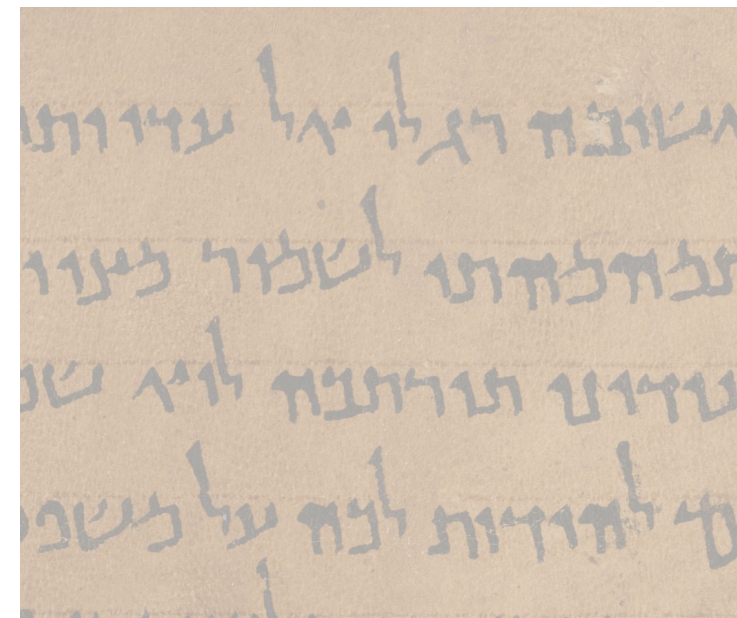 אשובה רגלי אל עדוותי
תמהמהתי לשמור מצוו
ודוני תורתכה לוא שכ
ם להודות לכה על משפ